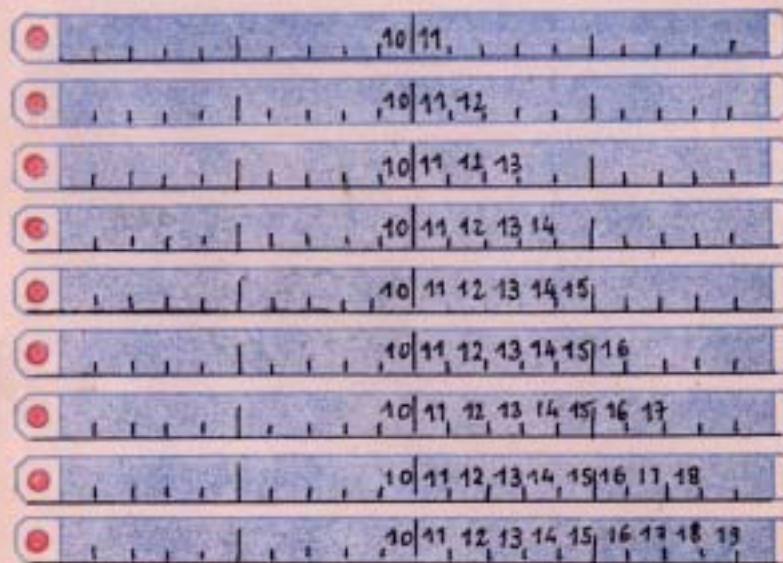 10 11
10 11 12
10 11 12 13
10 11 12 13 14
10 11 12 13 14 15
10 11 12 13 14 15 16
10 11 12 13 14 15 16 17
10 11 12 13 14 15 16 17 18
10 11 12 13 14 15 16 17 18 19